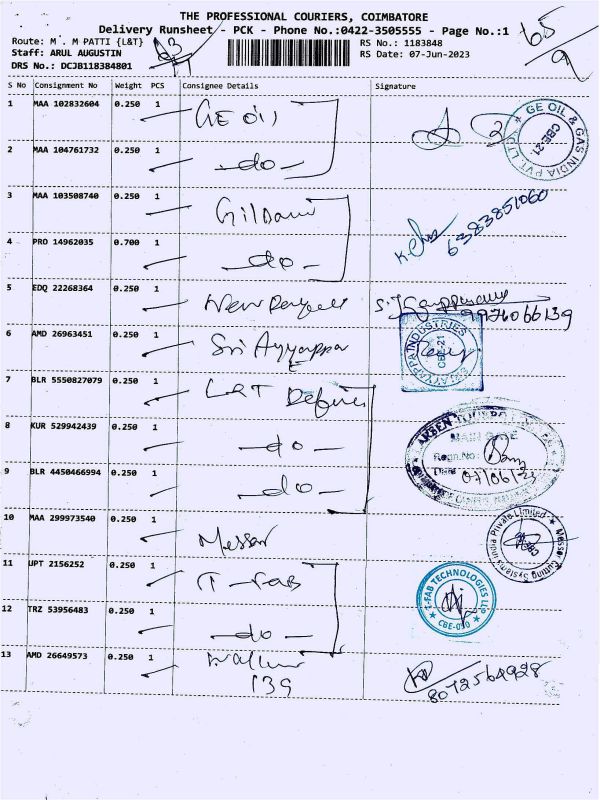 THE PROFESSIONAL COURIERS, COIMBATORE
Delivery Runsheet - PCK - Phone No.:0422-3505555 - Page No.:1
65/9
Route: M . M PATTI {L&T}
RS No.: 1183848
Staff: ARUL AUGUSTIN
RS Date: 07-Jun-2023
DRS No.: DCJB118384801
S No Consignment No Weight PCS Consignee Details Signature
1 MAA 102832604 0.250 1 GE Oil
GE OIL & GAS INDIA PVT. LTD.
CBE-21
2 MAA 104761732 0.250 1 - do -
3 MAA 103508740 0.250 1
6383851060
4 PRO 14962035 0.700 1 - do -
5 EDQ 22268364 0.250 1
6 AMD 26963451 0.250 1 Sri Ayyappa
CBE-21
7 BLR 5550827079 0.250 1 L&T Defence
8 KUR 529942439 0.250 1 - do -
MAIN GATE
Regn.No:
Date 07/06/23
9 BLR 4450466994 0.250 1 - do -
10 MAA 299973540 0.250 1 Messer
Messer Cutting Systems India Private Limited
11 UPT 2156252 0.250 1 T-Fab
T-FAB TECHNOLOGIES LLP
12 TRZ 53956483 0.250 1 - do -
13 AMD 26649573 0.250 1
139
8072564928